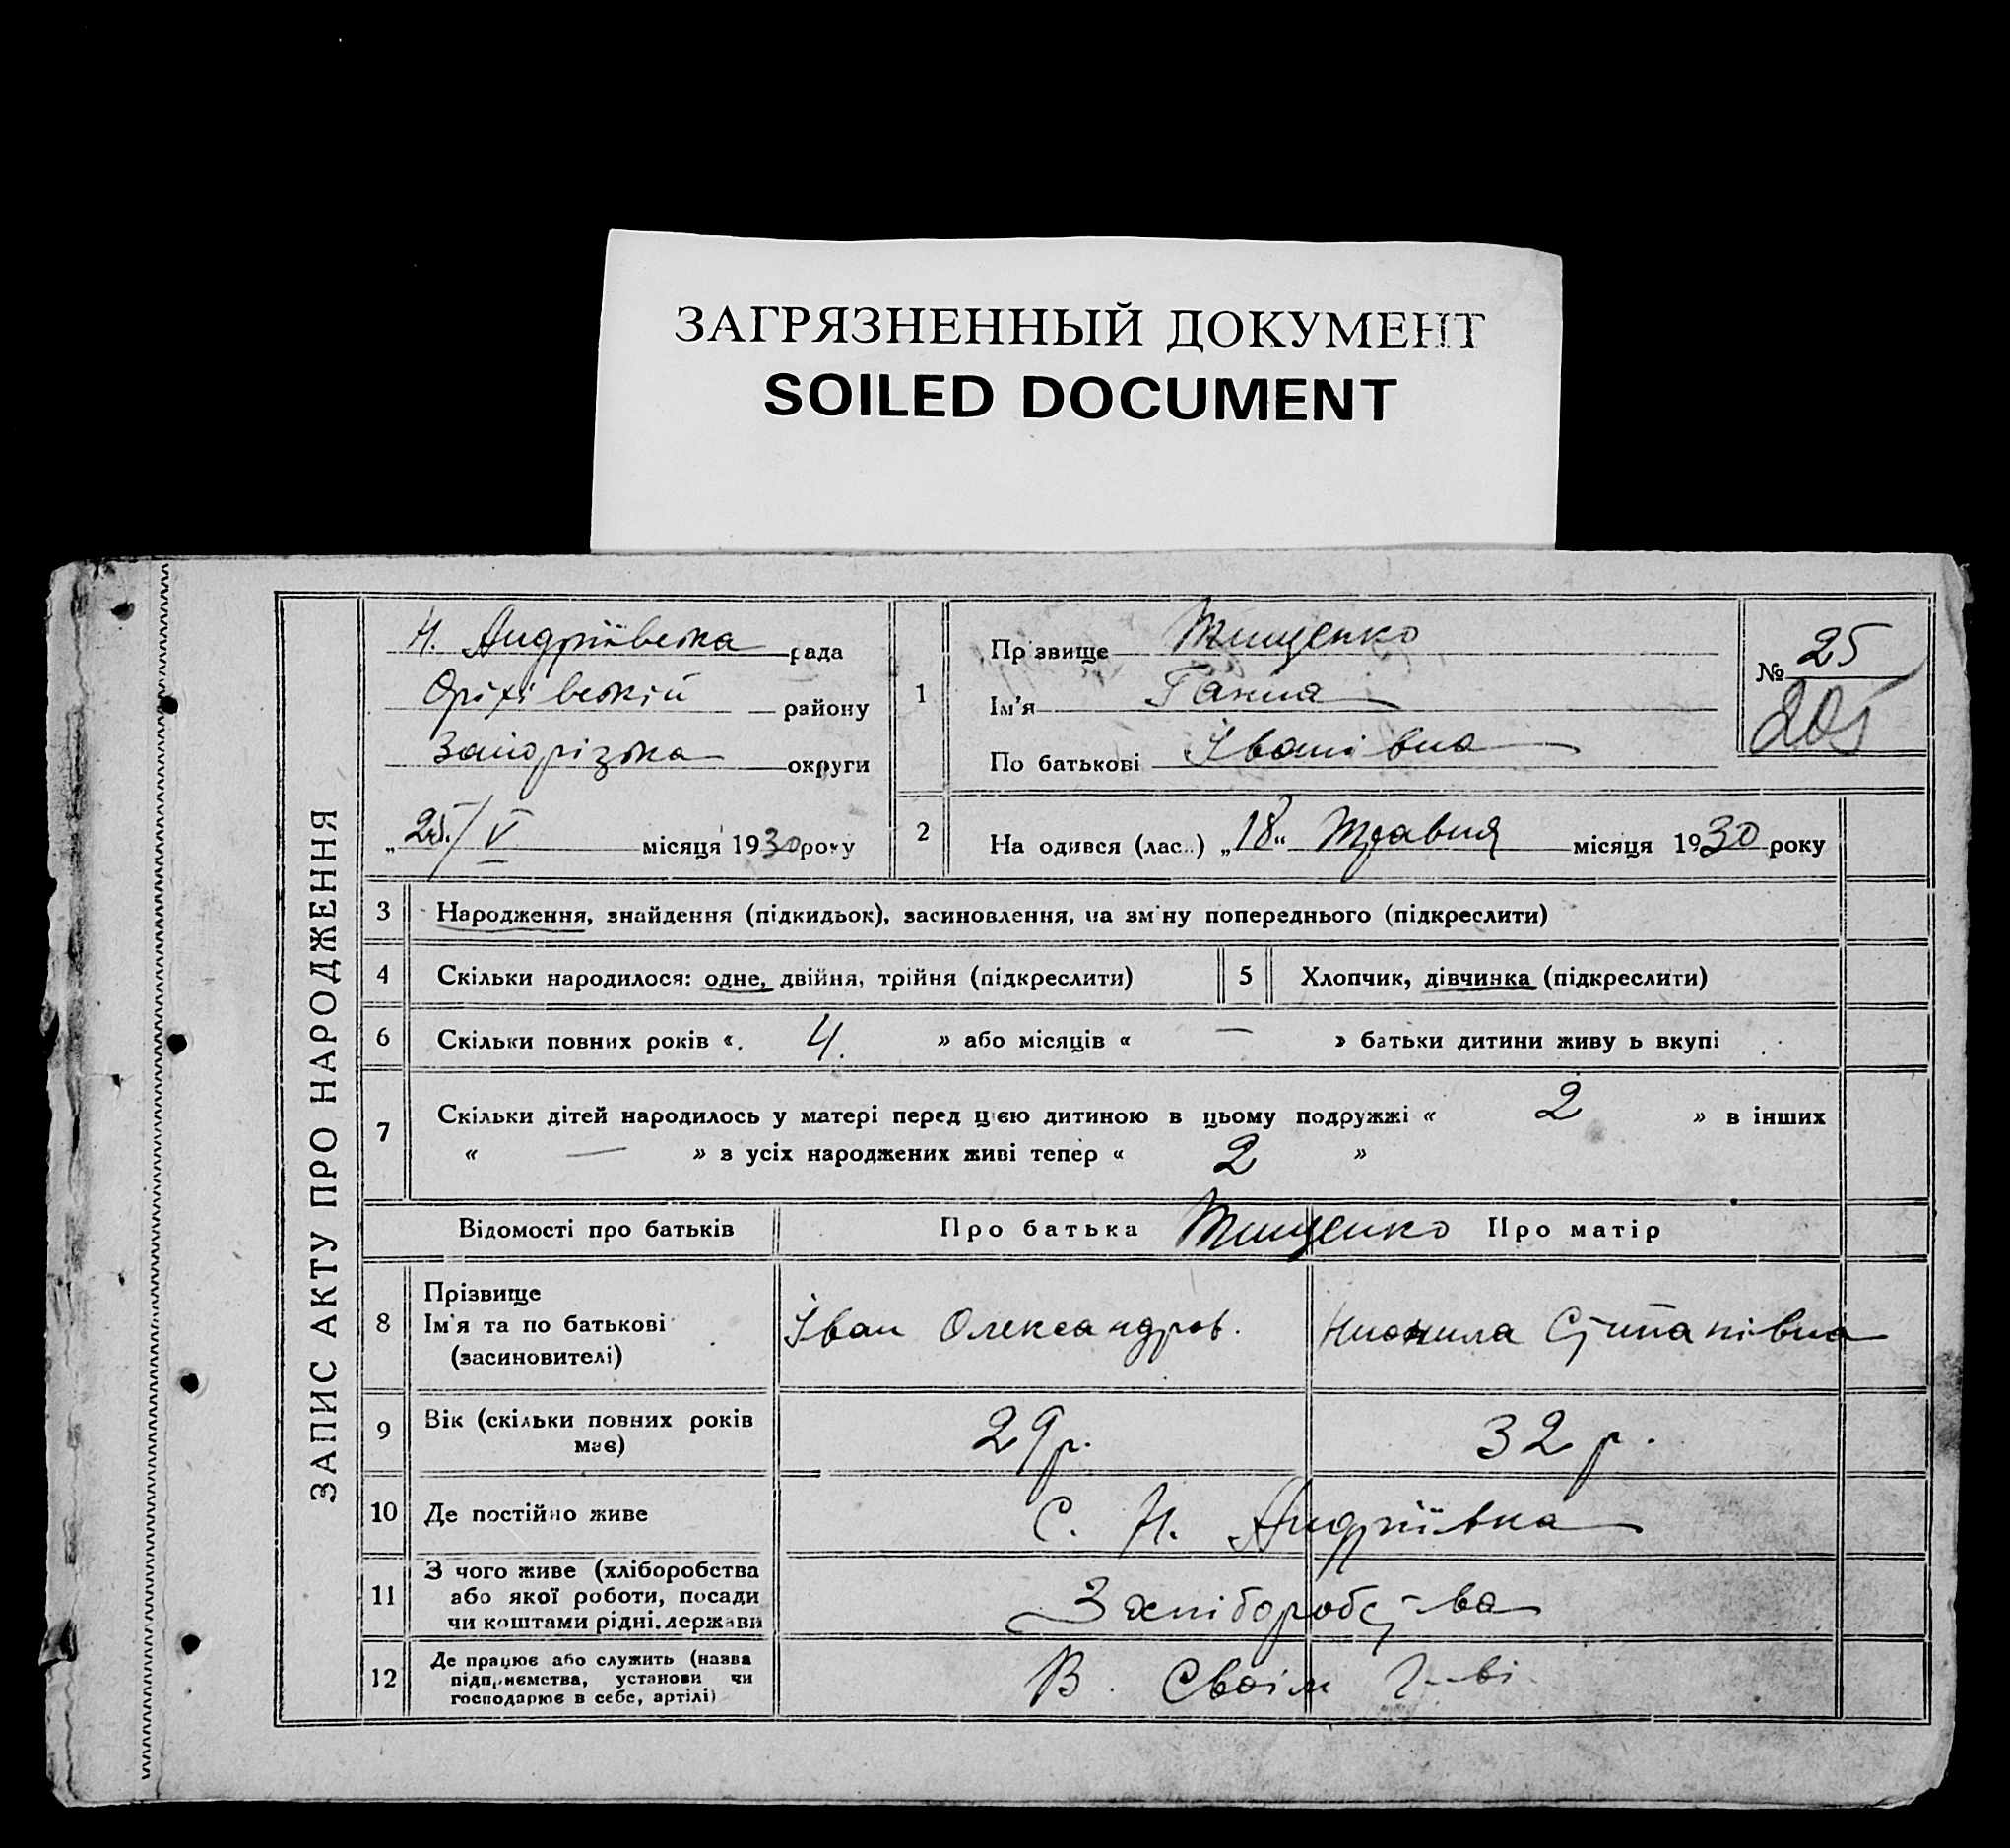 ЗАГРЯЗНЕННЫЙ ДОКУМЕНТ
SOILED DOCUMENT
ЗАПИС АКТУ ПРО НАРОДЖЕННЯ
Н. Андріївська рада
Оріхівській району
Запорізька округи
„25/V місяця 1930 року
1
Прізвище Тищенко
Ім'я Ганна
По батькові Іванівна
№ 25
205
2 Народився (лась) „18“ Травня місяця 1930 року
3 Народження, знайдення (підкидьок), засиновлення, на зміну попереднього (підкреслити)
4 Скільки народилося: одне, двійня, трійня (підкреслити) 5 Хлопчик, дівчинка (підкреслити)
6 Скільки повних років «. 4. » або місяців « — » батьки дитини живуть вкупі
7 Скільки дітей народилось у матері перед цією дитиною в цьому подружжі « 2 » в інших
« — » з усіх народжених живі тепер « 2 »
Відомості про батьків Про батька Тищенко Про матір
8 Прізвище
Ім'я та по батькові
(засиновителі)
Іван Олександров. Степанівна
9 Вік (скільки повних років
має)
29 р. 32 р.
10 Де постійно живе С. Н. Андріївка
11 З чого живе (хліборобства
або якої роботи, посади
чи коштами рідні, держави
З хліборобства
12 Де працює або служить (назва
підприємства, установи чи
господарює в себе, артілі)
В своїм